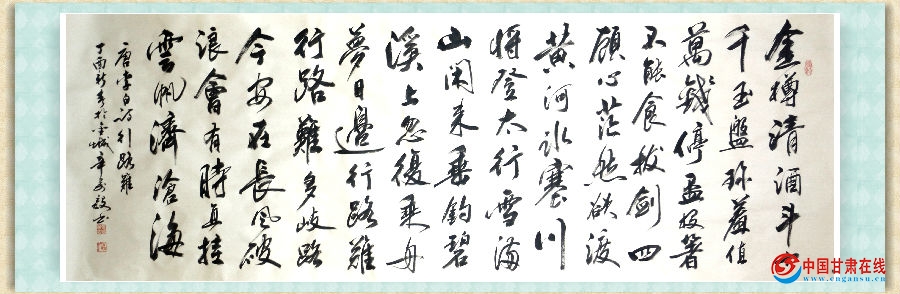 金樽清酒斗
千玉盤珍羞值
萬錢停盃投箸
不能食拔劍四
顧心茫然欲渡
黃河冰塞川
將登太行雪滿
山閑來垂釣碧
溪上忽復乘舟
夢日邊行路難
行路難多岐路
今安在長風破
浪會有時直掛
雲帆濟滄海
唐李白詩行路難
丁酉新春於金城
中国甘肃在线
www.cngansu.cn